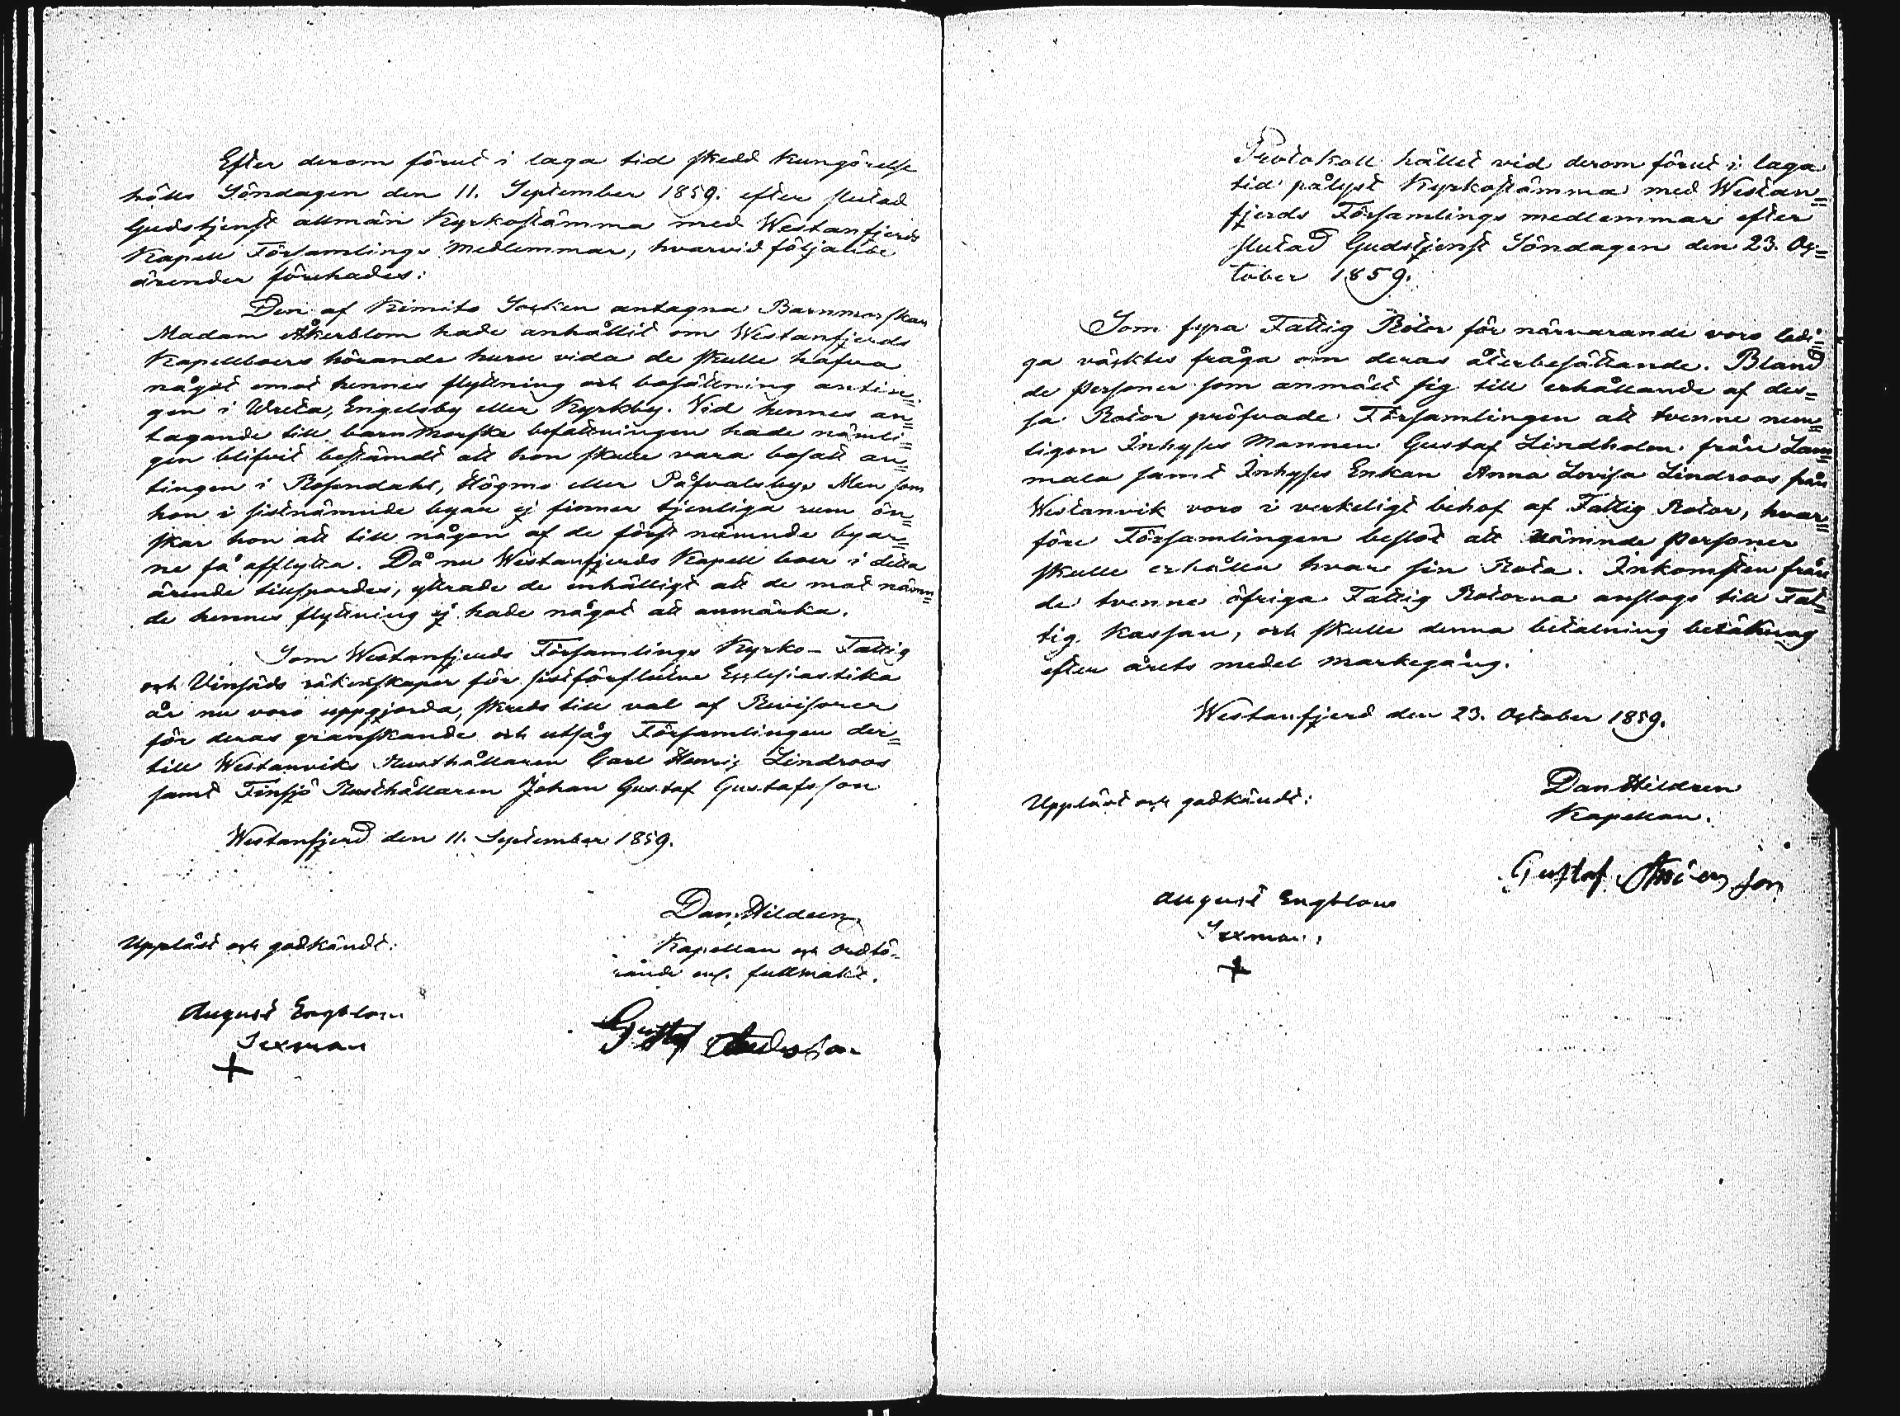 Efter derom förut i laga tid skedd kungörelse
hölls Söndagen den 11. September 1859. efter slutad
Gudstjenst allmän Kyrkostämma med Westanfjerds
Kapell Församlings Medlemmar, hvarvid följande
ärender förehades:
Den af Kimito Socken antagna Barnmorskan
Madam Åkerblom hade anhållit om Westanfjerds
Kapellboers hörande huru vida de skulle hafva
något emot hennes flyttning och bosättning antin=
gen i Wreta, Engelsby eller Kyrkby. Vid hennes an=
tagande till barnmorske befattningen hade nämli=
gen blifvit bestämdt att hon skulle vara bosatt an=
tingen i Rosendahl, Högmo eller Påfvalsby. Men som
hon i sistnämnde byar ej finner tjenliga rum ön=
skar hon att till någon af de först nämnde byar=
ne få afflytta. Då nu Westanfjerds Kapell boer i detta
ärende tillspordes, yttrade de enhälligt att de mot nämn=
de hennes flyttning ej hade något att anmärka.
Som Westanfjerds Församlings Kyrko- Fattig
och Vinsäds räkenskaper för sistförflutne Ecclesiastika
år nu voro uppgjorda, skreds till val af Revisorer
för deras granskande och utsåg Församlingen der=
till Westanviks Rusthållaren Carl Henric Lindroos
samt Finsjö Rusthållaren Johan Gustaf Gustafsson
Westanfjerd den 11. September 1859.
Dan. Hildeen
Kapellan och ordfö-
rande enl. fullmakt.
Uppläst och godkändt:
August Engblom
Sexman
+
Gustaf Andersson
Protokoll hållet vid derom förut i laga
tid pålyst Kyrkostämma med Westan=
fjerds Församlings medlemmar efter
slutad Gudstjenst Söndagen den 23. Oc=
tober 1859.
Som fyra Fattig Rotor för närvarande voro ledi=
ga väcktes fråga om deras återbesättande. Bland
de personer som anmält sig till erhållande af des=
sa Rotor pröfvade Församlingen att tvenne nem=
ligen Inhyses Mannen Gustaf Lindholm från Lam=
mala samt Inhyses Enkan Anna Lovisa Lindroos från
Westanvik voro i verkeligt behof af Fattig Rotor, hvar=
före Församlingen beslöt att nämnde personer
skulle erhålla hvar sin Rota. Inkomsten från
de tvenne öfriga Fattig Rotorna anslogs till Fat=
tig Kassan, och skulle denna betalning beräknas
efter årets medel markegång.
Westanfjerd den 23. October 1859.
Dan Hildeen
Kapellan.
Uppläst och godkändt:
Gustaf Andersson
August Engblom
Sexman.
+